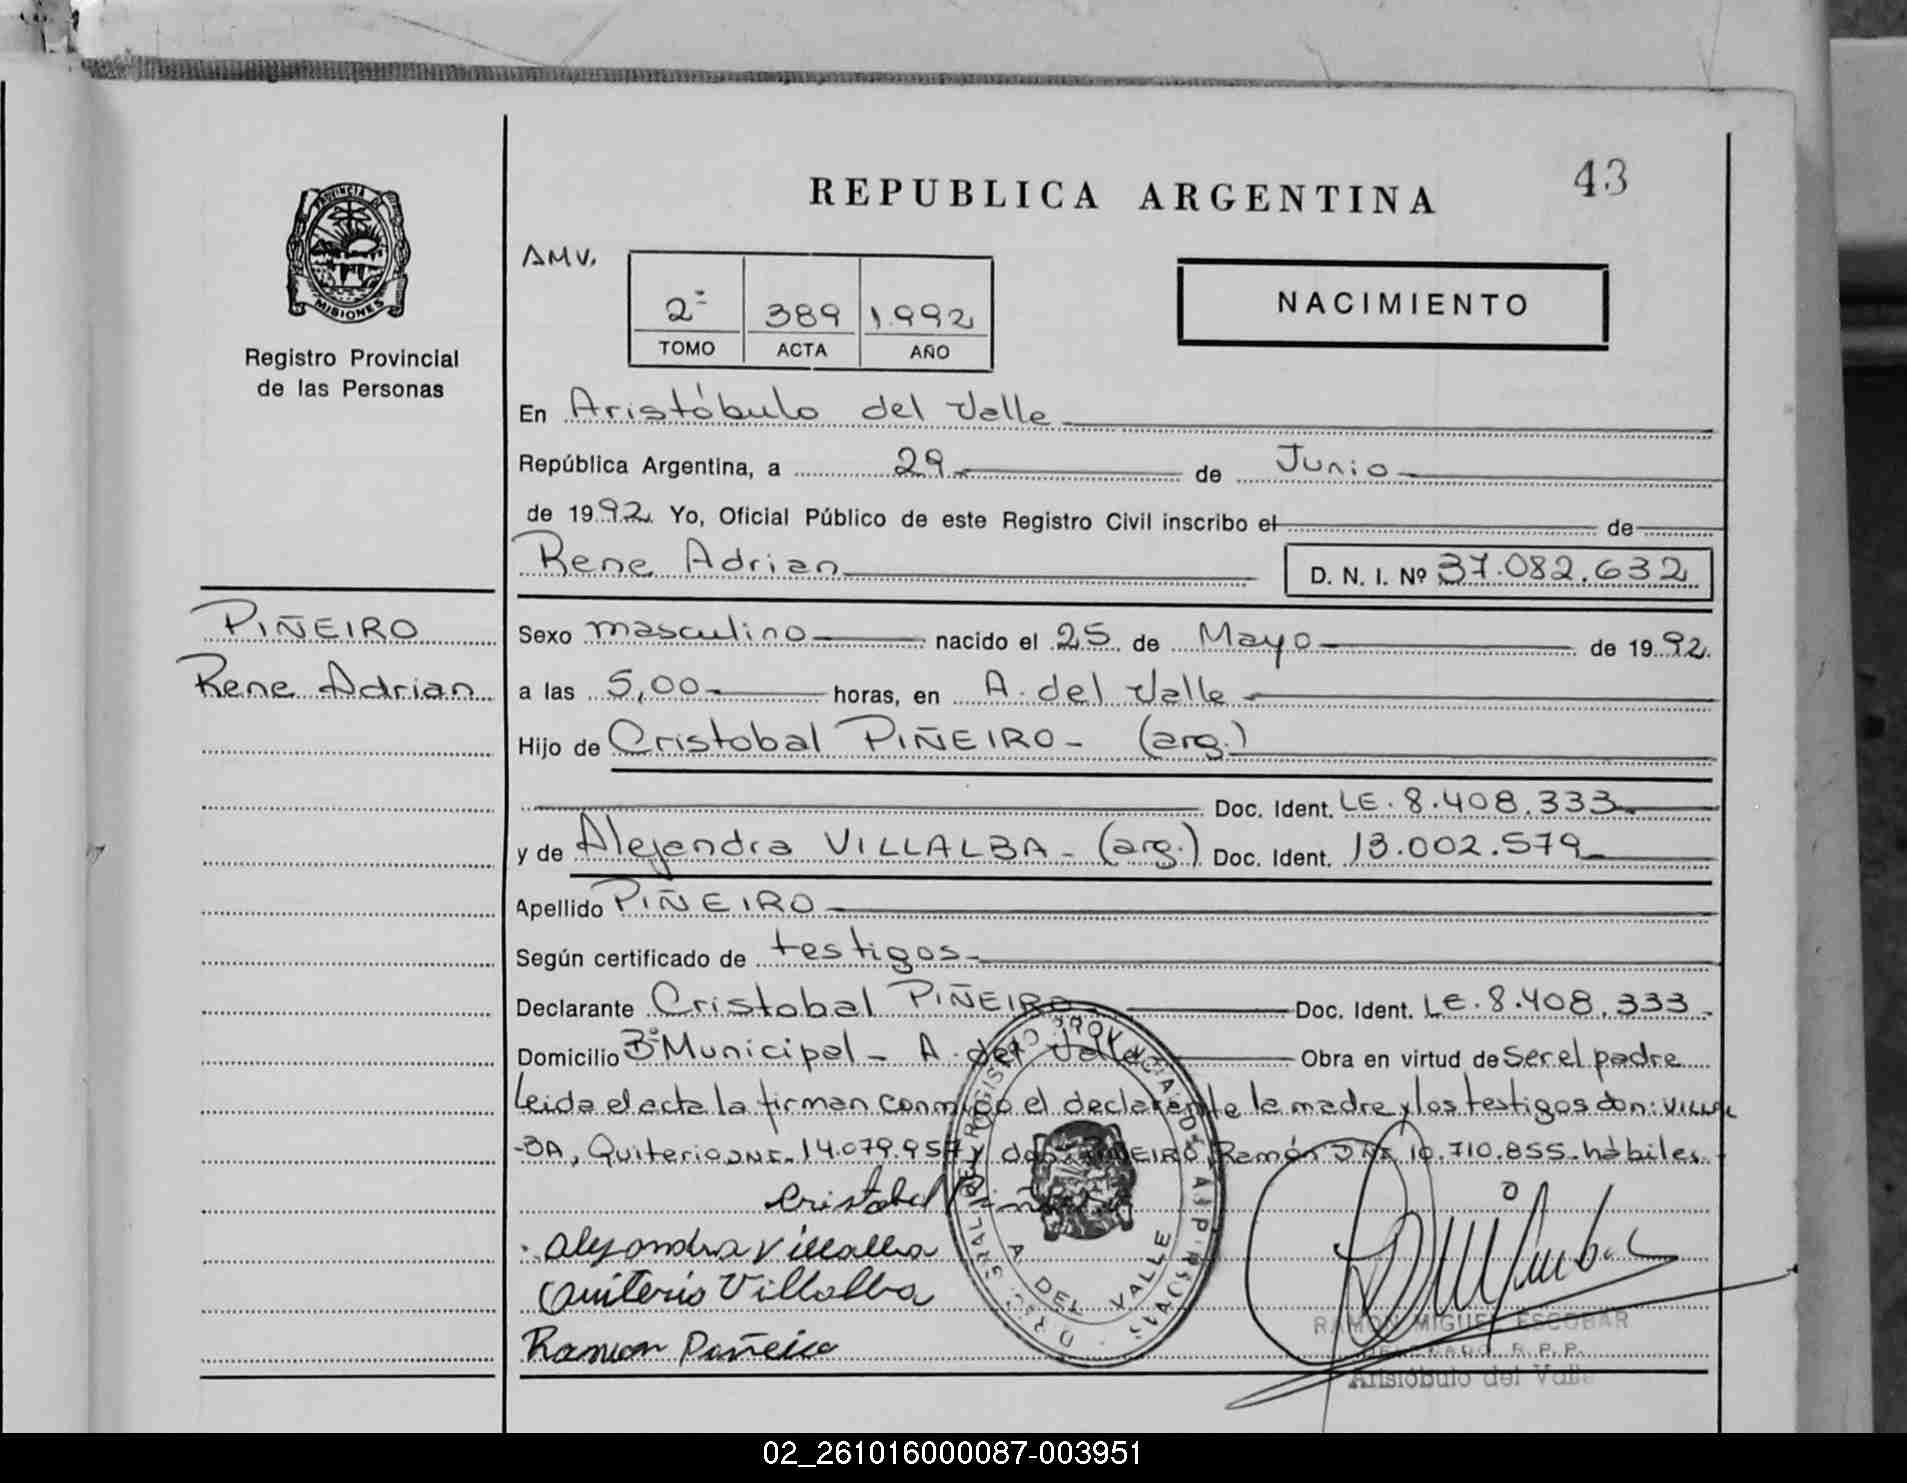 PROVINCIA
MISIONES
Registro Provincial
de las Personas
REPUBLICA ARGENTINA
43
AMV.
2º 389 1.992
TOMO ACTA AÑO
NACIMIENTO
En Aristóbulo del Valle
República Argentina, a 29 de Junio
de 1992 Yo, Oficial Público de este Registro Civil inscribo el de
Rene Adrian D. N. I. Nº 37.082.632
PIÑEIRO
Rene Adrian
Sexo masculino nacido el 25 de Mayo de 1992.
a las 5,00 horas, en A. del Valle
Hijo de Cristobal PIÑEIRO- (arg.)
Doc. Ident. LE. 8.408.333
y de Alejandra VILLALBA- (arg.) Doc. Ident. 13.002.579
Apellido PIÑEIRO
Según certificado de testigos
Declarante Cristobal PIÑEIRO Doc. Ident. LE. 8.408.333-
Domicilio Bº Municipal - A. del Valle Obra en virtud de Ser el padre
Leida el acta la firman conmigo el declarante la madre y los testigos don: VILLAL
-BA, Quiterio DNI. 14.079.957 y don PIÑEIRO, Ramón DNI 10.710.855. hábiles.
Cristobal Piñeiro
Alejandra Villalba
Quiterio Villalba
Ramon Piñeiro
REGISTRO PROVINCIAL DE LAS PERSONAS
A DEL VALLE
RAMON MIGUEL ESCOBAR
DELEGADO R.P.P.
Aristóbulo del Valle
02_261016000087-003951